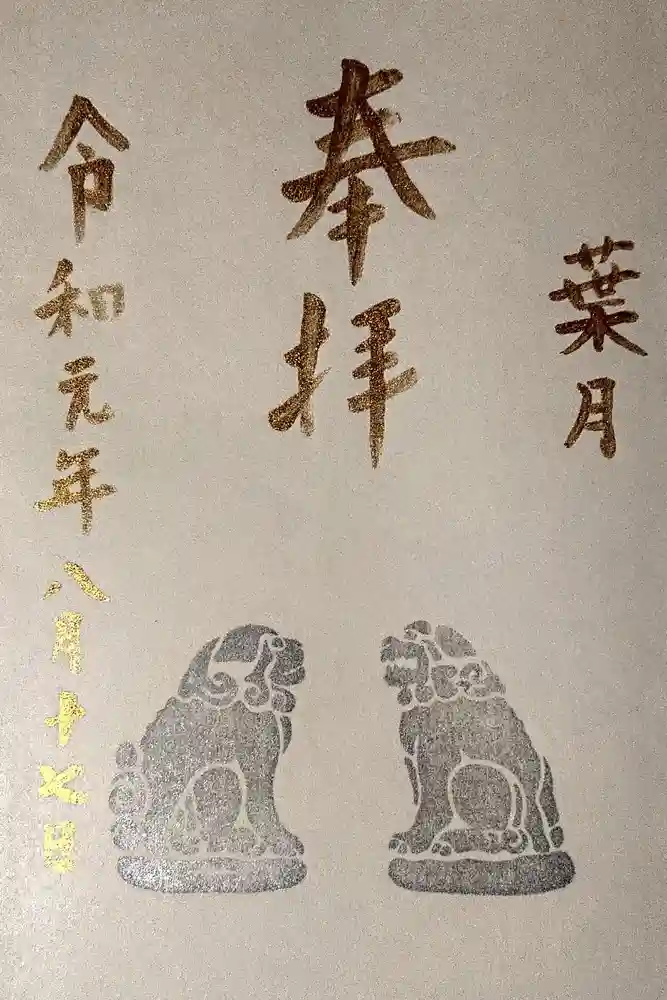 葉月
奉拝
令和元年八月十七日